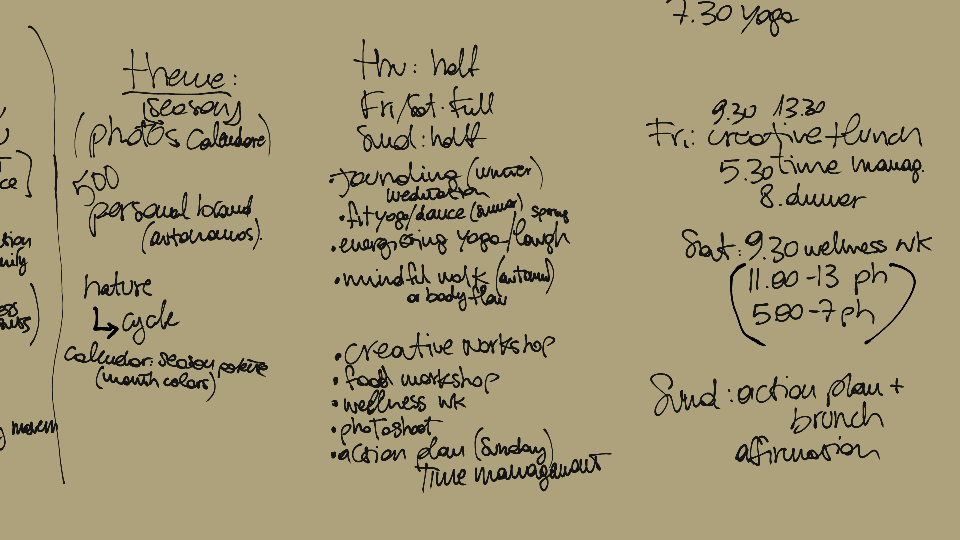 theme:
(season)
(photos calendare)
500
personal brand
(autonomos).
nature
↳ cycle
calendar: season
(month colors)
Thu: half
Fri/Sat. Full
Sund: half
• grounding (winter)
meditation
• fit yoga/dance (summer) spring
• energising yoga/laugh
• mindful walk (autumn)
a body flow
• creative workshop
• food workshop
• wellness wk
• photoshoot
• action plan (Sunday)
Time management
7.30 yoga
9.30 13.30
Fri: creative + lunch
5.30 time manag.
8. dinner
Sat: 9.30 wellness wk
(11.00-13 ph
5.00-7 ph)
Sund: action plan +
brunch
affirmation